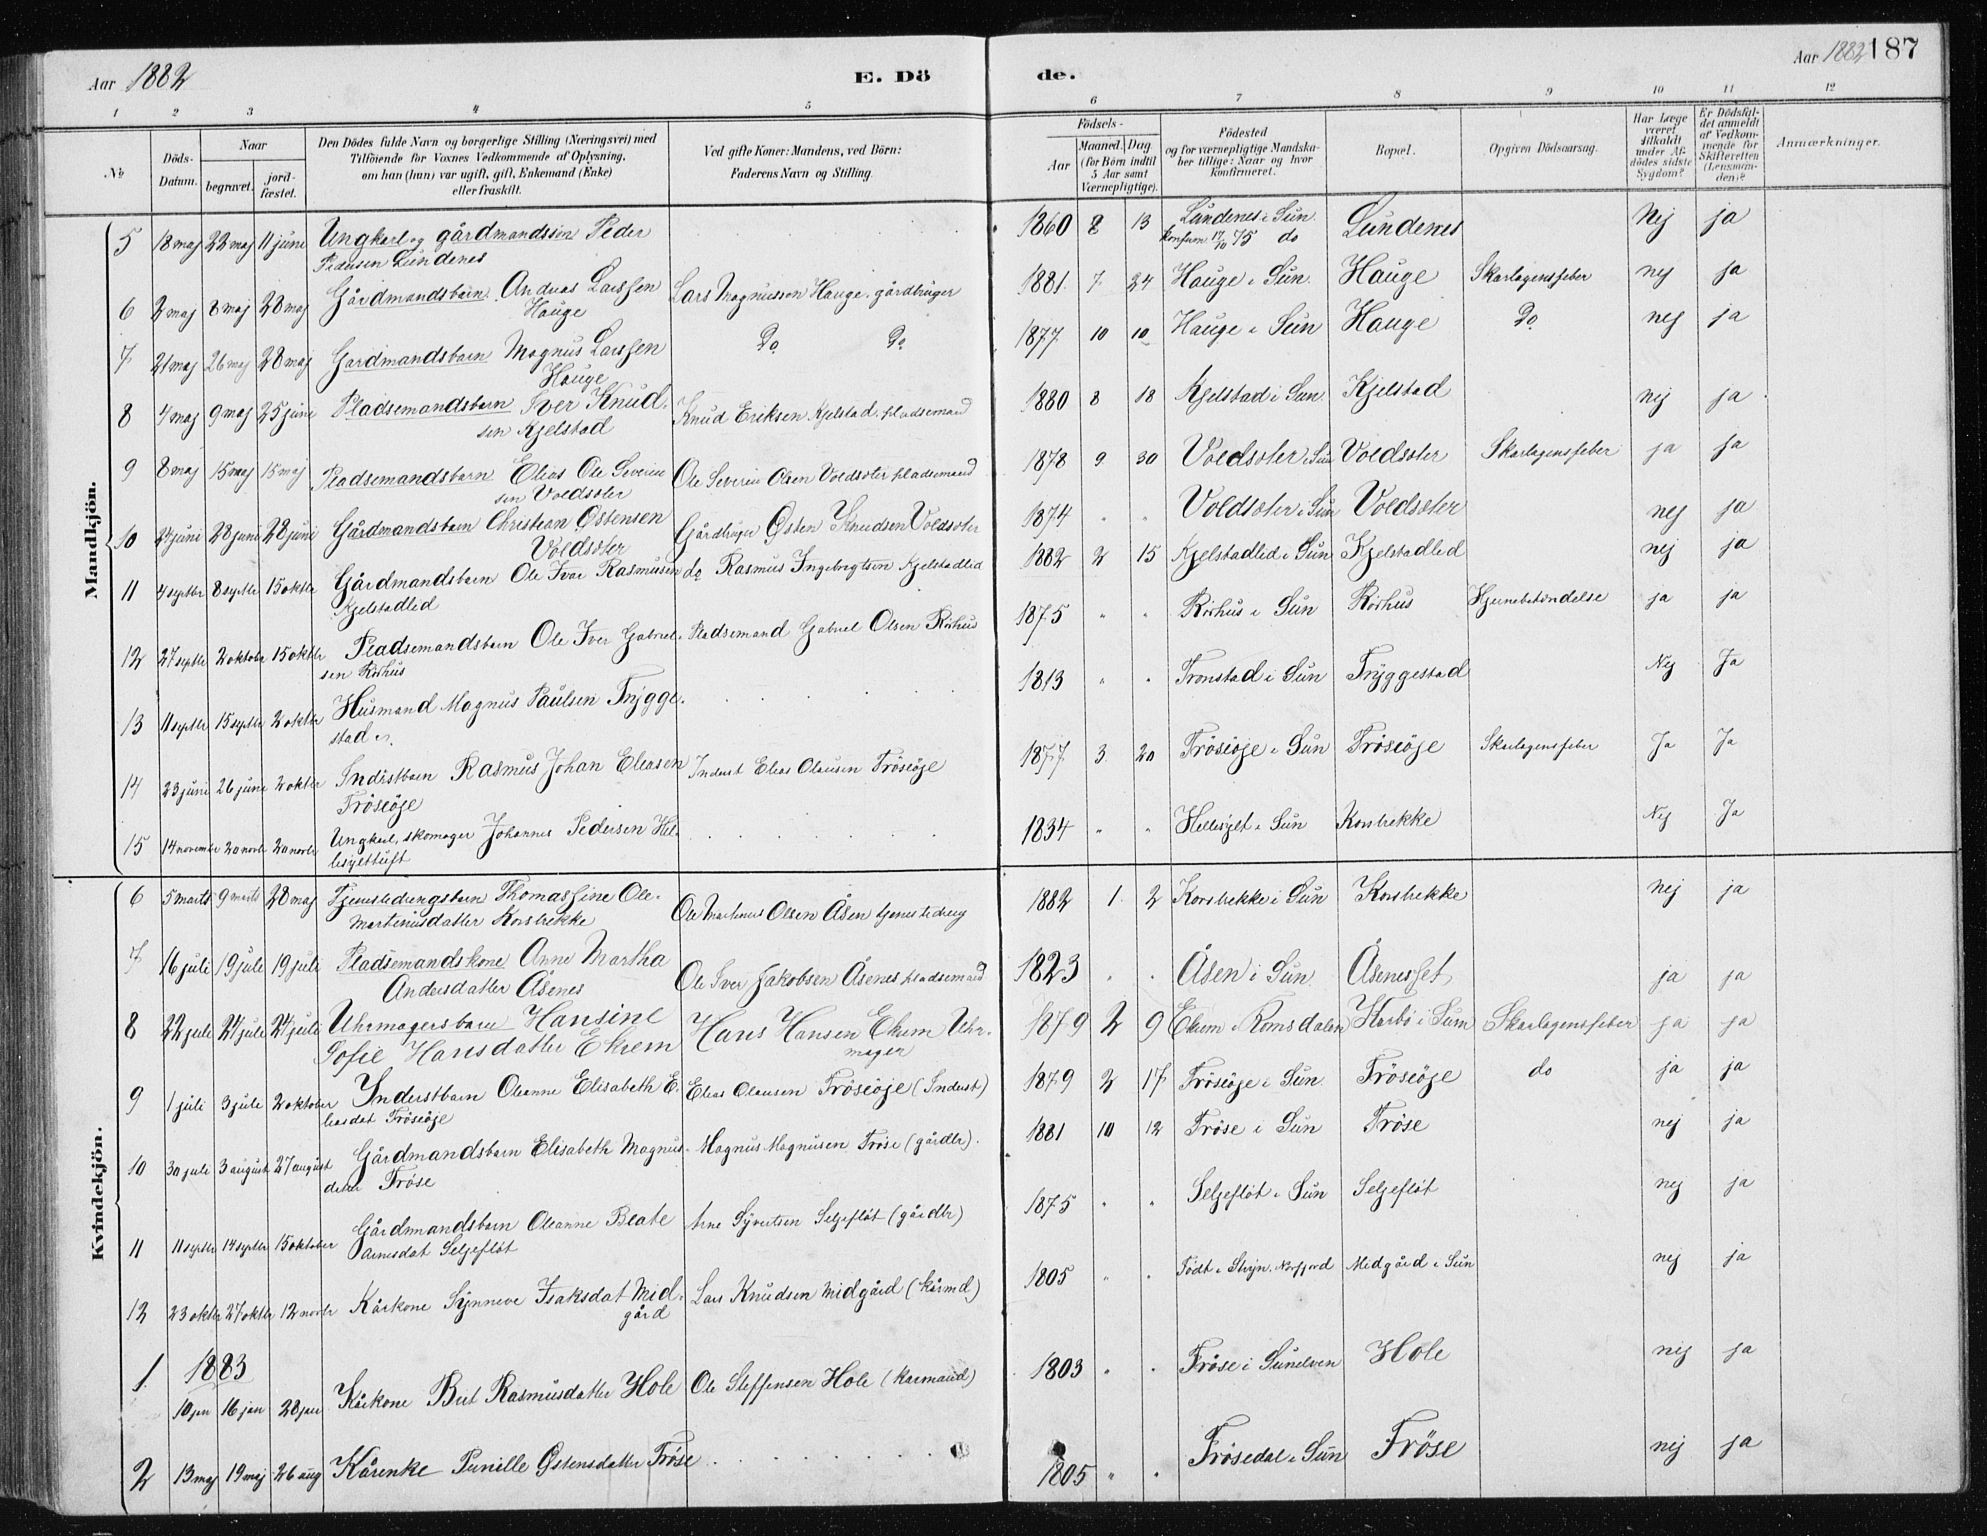 Aar 1882
E. Dö
de.
Aar 1882 187
1 2 3 4 5 6 7 8 9 10 11 12
№
Döds-Datum.
Naar
begravet.
jord-fæstet.
Den Dödes fulde Navn og borgerlige Stilling (Næringsvei) med
Tilföiende for Voxnes Vedkommende af Oplysning,
om han (hun) var ugift, gift, Enkemand (Enke)
eller fraskilt.
Ved gifte Koner: Mandens, ved Börn:
Faderens Navn og Stilling.
Födsels-
Aar
Maaned. Dag
(for Börn indtil
5 Aar samt
Værnepligtige).
Födested
og for værnepligtige Mandska-
ber tillige: Naar og hvor
konfirmeret.
Bopæl.
Opgiven Dödsaarsag.
Har Læge
været
tilkaldt
under Af-
dödes sidste
Sygdom?
Er Dödsfal-
det anmeldt
af Vedkom-
mende for
Skifteretten
(Lensman-
den)?
Anmærkninger.
Mandkjön.
5 18 maj 22 maj 11 juni Ungkarl og gårdmandssön Peder 1860 8 13 Lundenes i Sun. Lundenes Nej ja
Pedersen Lundenes konfirm 17/10 75 do
6 2 maj 8 maj 28 maj Gårdmandsbarn Andreas Larssen Lars Magnusson Hauge. gårdbruger 1881. 7. 24 Hauge i Sun. Hauge Skarlagensfeber nej ja
Hauge
7 21 maj 26 maj 28 maj Gardmandsbarn Magnus Larssen Do Do 1877. 10 10 Hauge i Sun Hauge Do nej ja
Hauge
8 4 maj 9 maj 25 june Pladsemandsbarn Iver Knud- Knud Eriksen Kjelstad. pladsemand 1880 8 18 Kjelstad i Sun. Kjelstad nej ja
sen Kjelstad
9 8 maj 15 maj 15 maj Pladsemandsbarn Elias Ole Severin Ole Severin Olsen Voldsæter pladsemand 1878 9 30 Voldsæter i Sun Voldsæter Skarlagensfeber ja ja
sen Voldsæter
10 24 juni 28 juni 28 juni Gårdmandsbarn Christian Østensen Gårdbruger Østen Knudsen Voldsæter 1874 " " Voldsæter i Sun Voldsæter nej ja
Voldsæter
11 4 septbr 8 septbr 15 oktbr Gårdmandsbarn Ole Ivar Rasmusen do Rasmus Ingebrigtsen Kjelstadlid 1882 2 15 Kjelstadlid i Sun Kjelstadlid nej ja
Kjelstadlid
12 27 septbr 2 oktober 15 oktbr Pladsemandsbarn Ole Iver Gabriel- Pladsemand Gabriel Olsen Rörhus 1875 " " Rörhus i Sun Rörhus Hjernebetændelse ja ja
sen Rörhus
13 11 septbr 15 septbr 2 oktbr Husmand Magnus Paulsen Trygge- 1813 " " Tronstad i Sun Tryggestad Nej Ja
stad
14 23 juni 26 june 2 oktbr Inderstbarn Rasmus Johan Eleasen Inderst Elias Olausen Fröseöje 1877 3. 20 Fröseöje i Sun Fröseöje Skarlagensfeber Ja Ja
Fröseöje
15 14 november 20 novbr 20 novbr Ungkarl, skomager Johannes Pedersen Hel- 1834 " " Hellesylt i Sun Korsbrekke Nej Ja
lesylttuft
Kvindekjön.
6 5 marts 9 marts 28 maj Tjenestedrengsbarn Thomassine Ole- Ole Martinus Olsen Åsen tjenestedreng 1882 1. 2 Korsbrekke i Sun Korsbrekke nej ja
Martinusdatter Korsbrekke
7 16 juli 19 jule 19 juli Pladsemandskone Anne Martha Ole Iver Jakobsen Åsenes pladsemand 1823 " " Åsen i Sun. Åsenesset ja ja
Andersdatter Åsenes
8 22 jule 24 jule 24 jule Uhrmagersbarn Hansine Hans Hansen Ekrem Uhr- 1879 2 9 Ekrem i Romsdalen Skarlagensfeber ja ja
Sofie Hansdatter Ekrem mager
9 1 juli 3 jule 2 oktober Inderstbarn Oleanne Elisabeth E- Elias Olausen Fröseöje (Inderst) 1879 2 17 Fröseöje i Sun. Fröseöje do ja ja
liasdat Fröseöje
10 30 jule 3 august 27 august Gårdmandsbarn Elisabeth Magnus- Magnus Magnusen Fröse (gårdbr). 1881 10 12 Fröse i Sun Fröse nej ja
datter Fröse
11 11 septbr 14 septbr 15 oktober Gårdmandsbarn Oleanne Beate Arne Syvertsen Seljeflöt (gårdbr) 1875 " " Seljeflöt i Sun Seljeflöt nej ja
Arnesdat Seljeflöt
12 23 oktbr 27 oktbr 12 novbr Kårkone Synneve Isaksdat Mid- Lars Knudsen Midgård (kårmd) 1805 " " Födt i Stryn. Norfjord Midgård i Sun nej ja
gård
1883
1. 10 jan 16 jan 28 jan Kårkone Brit Rasmusdatter Hole Ole Steffensen Hole (kårmand) 1803 " " Fröse i Sunelven Hole nej ja
2 13 maj 19 maj 26 aug Kårenke Pernille Østensdatter Fröse 1805 " " Frösedal i Sun Fröse nej ja